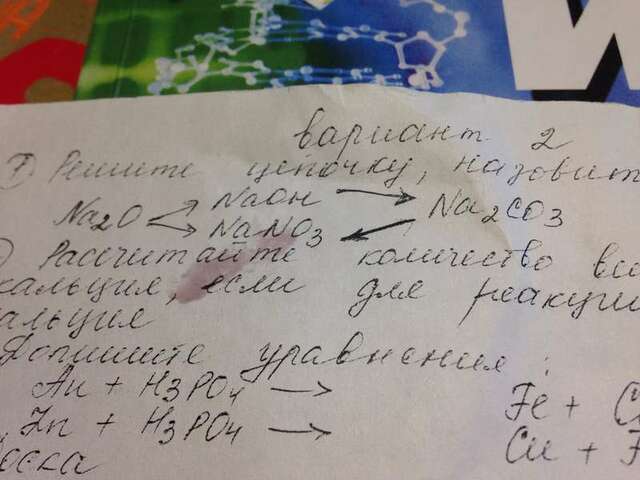 W
вариант 2
1) Решите цепочку, назовит
Na2O NaOH Na2CO3
NaNO3
Рассчитайте количество ве
кальция, если для реакци
альция
Допишите уравнения:
Au + H3PO4 → Fe + C
Zn + H3PO4 → Cu + F
оска